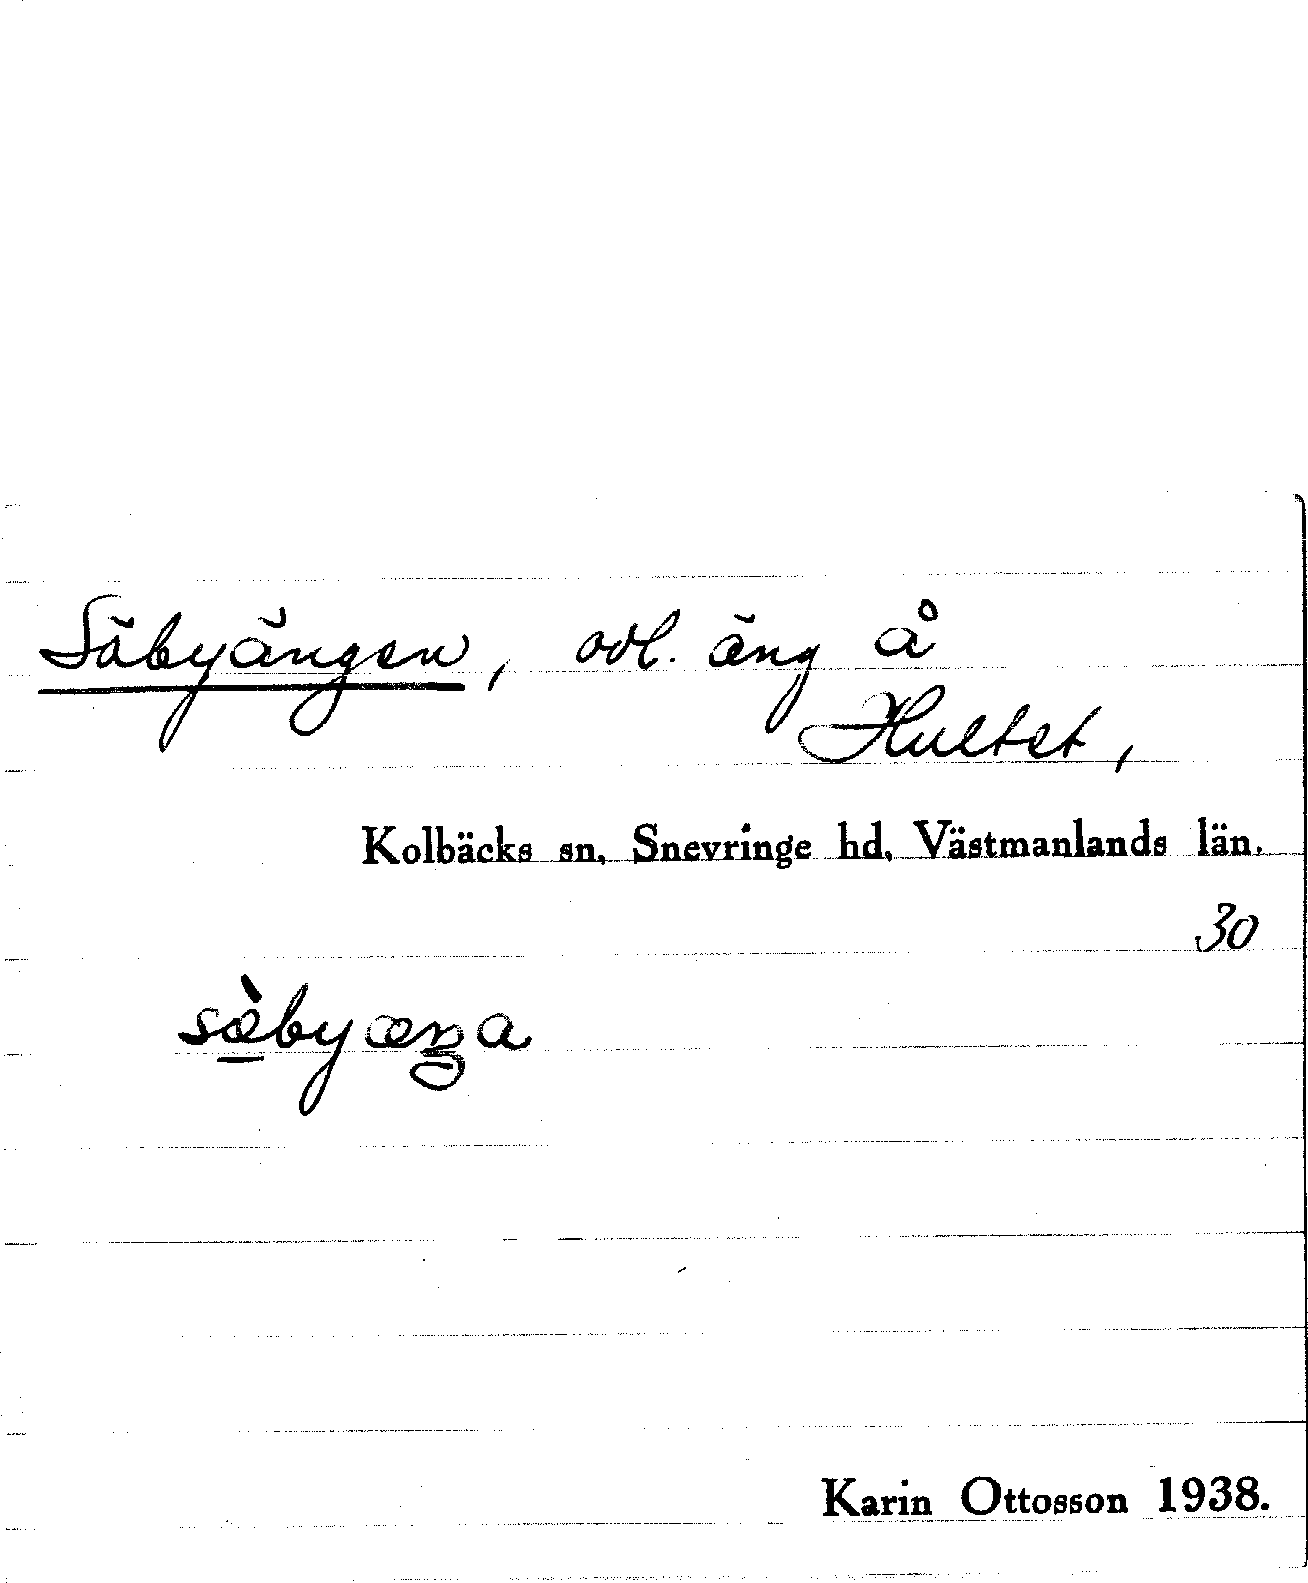 Säbyängen, odl. äng å
Hultet,
Kolbäcks sn, Snevringe hd, Västmanlands län.
30
sæ̀byæŋa
Karin Ottosson 1938.